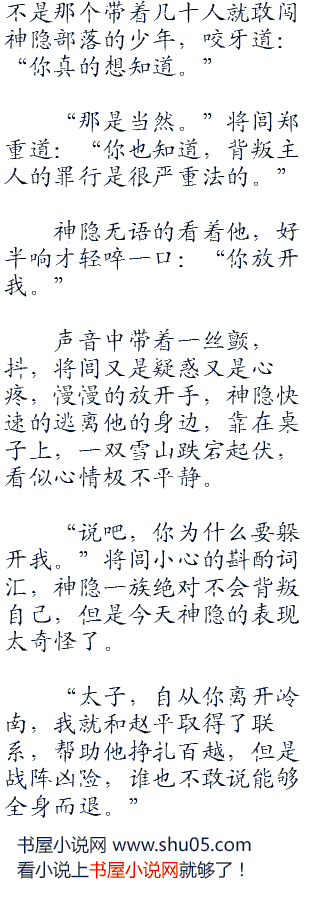 不是那个带着几十人就敢闯
神隐部落的少年，咬牙道：
“你真的想知道。”
“那是当然。”将闾郑
重道：“你也知道，背叛主
人的罪行是很严重法的。”
神隐无语的看着他，好
半响才轻啐一口：“你放开
我。”
声音中带着一丝颤，
抖，将闾又是疑惑又是心
疼，慢慢的放开手，神隐快
速的逃离他的身边，靠在桌
子上，一双雪山跌宕起伏，
看似心情极不平静。
“说吧，你为什么要躲
开我。”将闾小心的斟酌词
汇，神隐一族绝对不会背叛
自己，但是今天神隐的表现
太奇怪了。
“太子，自从你离开岭
南，我就和赵平取得了联
系，帮助他挣扎百越，但是
战阵凶险，谁也不敢说能够
全身而退。”
书屋小说网 www.shu05.com
看小说上书屋小说网就够了！